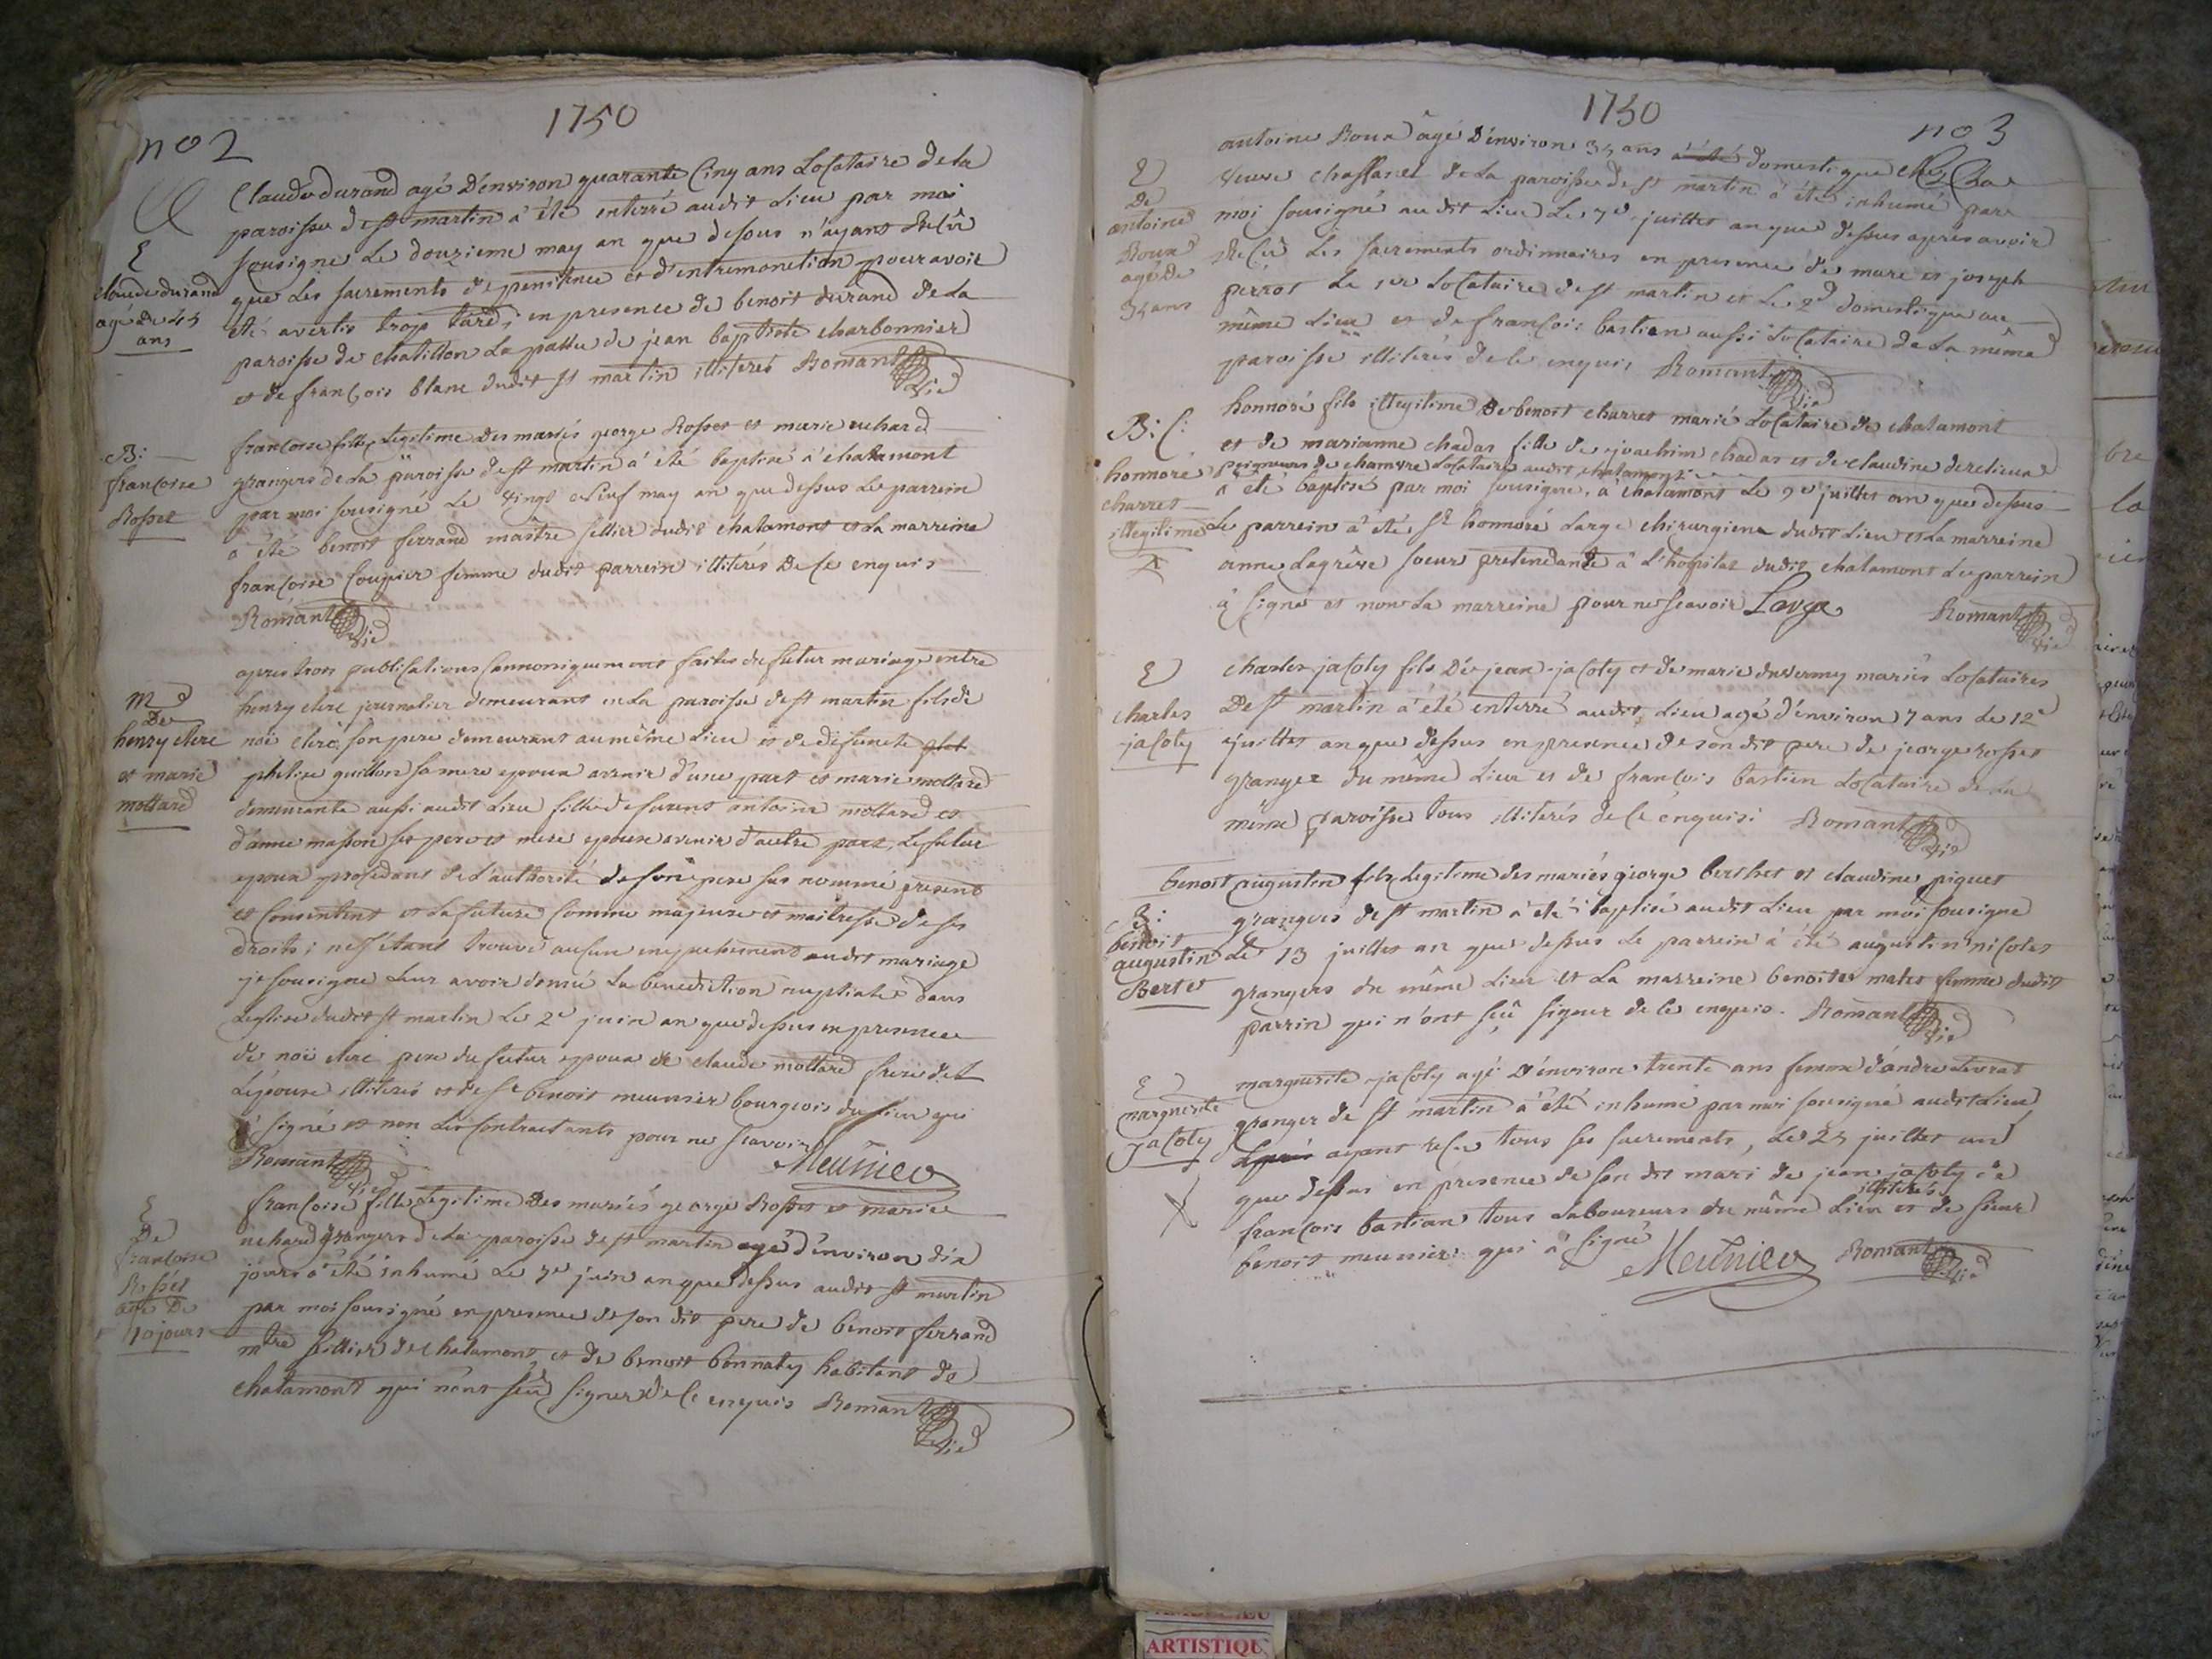 1750
no 2
Claude durand agé D'environ quarante Cinq ans Locataire de la
paroisse de st martin a été enterré audit Lieu par moi
sousigné Le douzieme may an que dessus n'ayant Recû
que Les sacrements de penitence et d'extremonction pour avoir
été avertis trop tard, en presence de benoit durand de La
paroisse de chatillon La pallu de jean baptiste charbonnier
et de françois blanc dudit st martin illiterés Romant
E
claude durand
agé de 45
ans
francoise fille Legitime Des mariés george Rosset et marie nehard
grangers de La paroisse de st martin a été baptisé a chalamont
par moi sousigné Le vingt neuf may an que dessus Le parrein
a été benoit ferrand maitre sellier dudit chalamont et La marreine
françoise Coupier femme dudit parrein illiterés De Ce enquis
Romant
B:
francoise
Rosset
apres trois publications Cannoniquement faites du futur mariage entre
henry clerc journalier demeurant en La paroisse de st martin fils de
noë clerc son pere demeurant au même Lieu et de defuncte
philise guillon sa mere epoux avenir d'une part et marie mottard
demeurante aussi audit Lieu fille de defunt antoine mottard et
d'anne masson ses pere et mere epouse avenir d'autre part, Le futur
epoux procedant de L'authorité de son pere sus nommé present
et Consentent et La future Comme majeure et maitresse de ses
droits; ne s'étant trouvé aucun empechement audit mariage
je sousigné Leur avoir donné La benediction nuptiale dans
L'eglise dudit st martin Le 2e juin an que dessus en presence
de noë clerc pere du futur epoux de claude mottard frere de
L'epouse illiterés et de sr benoit meunier bourgeois du lieu qui
a signé et non Les Contractants pour ne scavoir
Romant Meunier
M
De
henry clerc
et marie
mottard
francoise fille Legitime Des mariés george Rosset et marie
nehard grangers de La paroisse de st martin agé d'environ dix
jours a été inhumé Le 7e juin an que dessus audit st martin
par moi sousigné en presence de son dit pere de benoit ferrand
mtre sellier de chalamont, et de benoit bonnaty habitant de
chalamont qui n'ont sçû signer de Ce enquis Romant
E
De
francoise
Rosset
agé De
10 jours
1750
no 3
antoine Roux âgé D'environ 35 ans domestique chez La
veuve chassanel de La paroisse de st martin a été inhumé par
moi sousigné audit Lieu Le 7e juillet an que dessus apres avoir
Recû Les sacrements ordinnaires en presence de marc et joseph
perrot Le 1er Locataire de st martin et Le 2d domestique au
même Lieu et de françois bastian aussi Locataire de La même
paroisse illiterés de Ce enquis Romant
E
De
antoine
Roux
agé De
35 ans
honnoré fils illegitime De benoit charret marié Locataire de chalamont
et de marianne chadas fille de joachim chadas et de claudine derelieux
peigneurs de chamvre Locataires audit chalamont
a été baptisé par moi sousigné, a chalamont Le 9e juillet an que dessus
Le parrein a été sr honnoré Large chirurgien dudit Lieu et La marreine
anne Lagrêve soeur pretendante a L'hopital dudit chalamont Le parrein
a signé et non La marreine pour ne scavoir Large Romant
B: C:
honnoré
charret
illegitime
charles jacoty fils De jean jacoty et de marie duvernay mariés Locataires
De st martin a été enterré audit Lieu agé d'environ 7 ans Le 12e
juillet an que dessus en presence de son dit pere de jeorge rosset
granger du même Lieu et de françois bastien Locataire de La
même paroisse tous illiterés de Ce enquis: Romant
E
charles
jacoty
benoit augustin fils Legitime des mariés george berthet et claudine piquet
grangers de st martin a été baptisé audit Lieu par moi sousigné
Le 13 juillet an que dessus Le parrein a été augustin nicolet
grangers du même Lieu et La marreine benoite matet femme dudit
parrin qui n'ont sçû signer de Ce enquis. Romant
B:
benoit
augustin
Bertet
marguerite jacoty agé D'environ trente ans femme d'andre Levrat
granger de st martin a été inhumé par moi sousigné audit Lieu
ayant recû tous ses sacrements, Le 25 juillet an
que dessus en presence de son dit mari de jean jacoty et de
françois bastian tous Laboureurs du même Lieu illiterés et de sieur
benoit meunier qui a signé Meunier Romant
E
marguerite
jacoty
ARTISTIQU